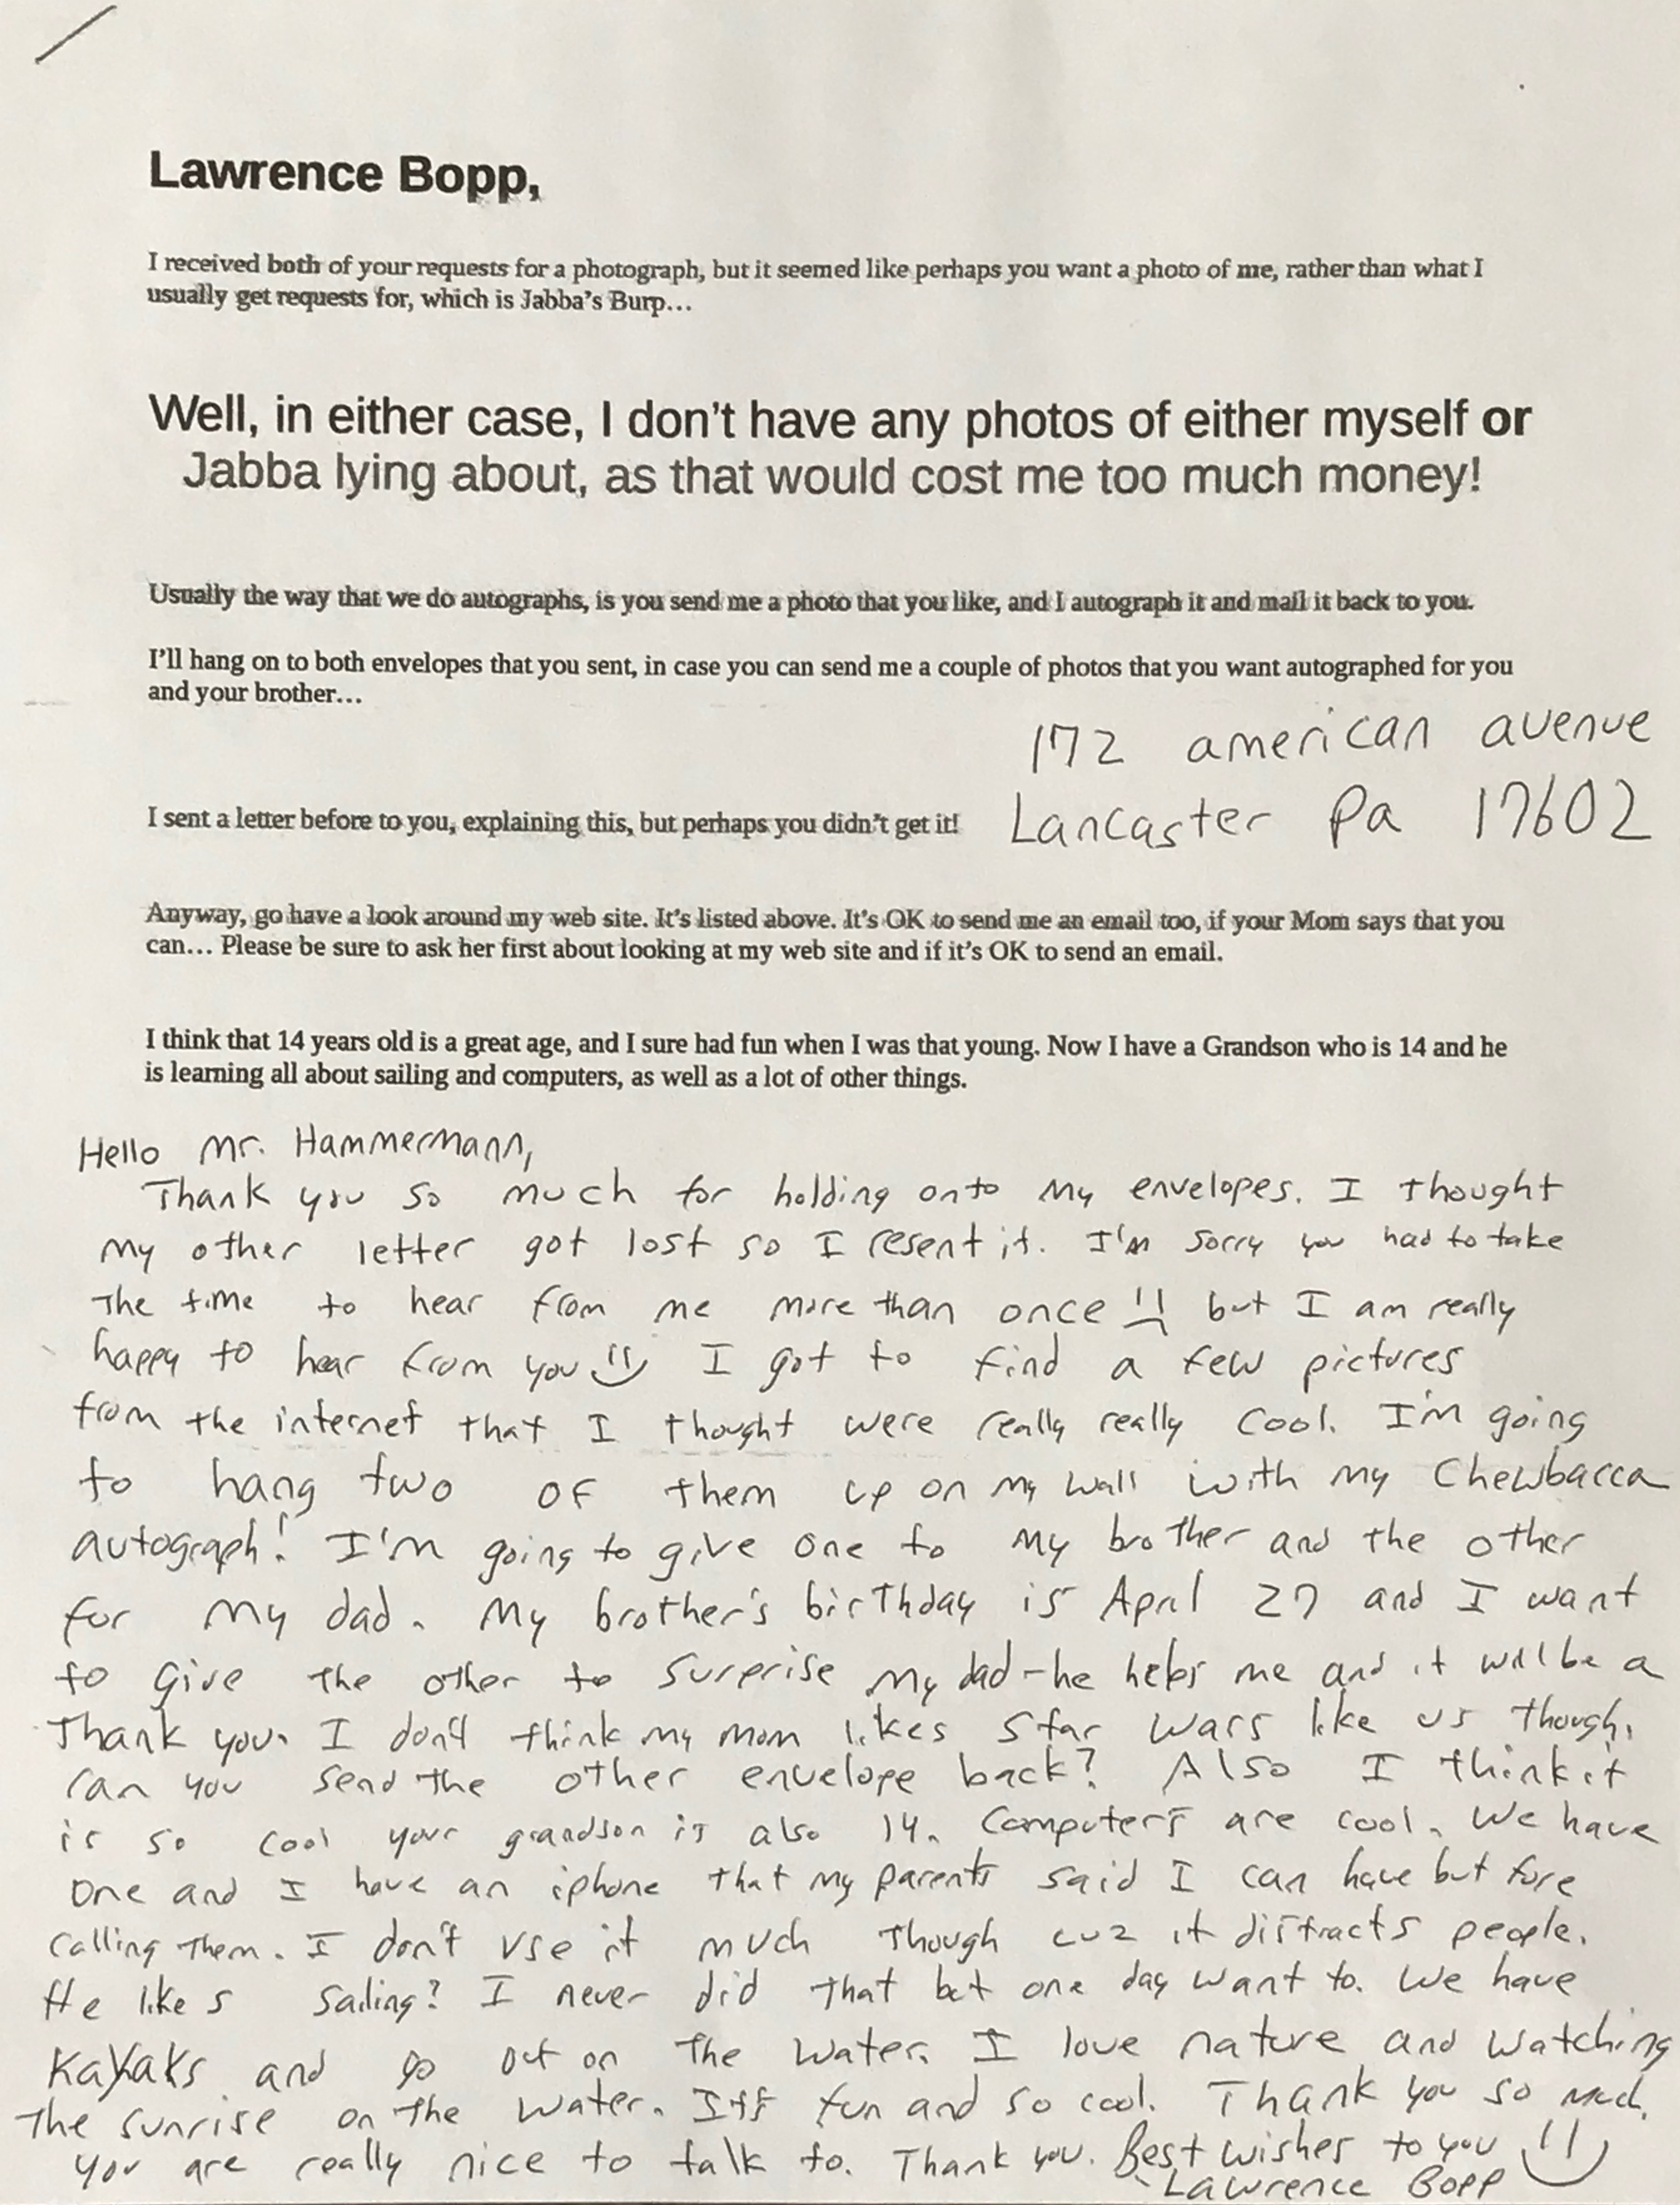 Lawrence Bopp,
I received both of your requests for a photograph, but it seemed like perhaps you want a photo of me, rather than what I
usually get requests for, which is Jabba's Burp...
Well, in either case, I don't have any photos of either myself or
Jabba lying about, as that would cost me too much money!
Usually the way that we do autographs, is you send me a photo that you like, and I autograph it and mail it back to you.
I'll hang on to both envelopes that you sent, in case you can send me a couple of photos that you want autographed for you
and your brother...
172 american avenue
Lancaster Pa 17602
I sent a letter before to you, explaining this, but perhaps you didn't get it!
Anyway, go have a look around my web site. It's listed above. It's OK to send me an email too, if your Mom says that you
can... Please be sure to ask her first about looking at my web site and if it's OK to send an email.
I think that 14 years old is a great age, and I sure had fun when I was that young. Now I have a Grandson who is 14 and he
is learning all about sailing and computers, as well as a lot of other things.
Hello Mr. Hammermann,
Thank you so much for holding onto my envelopes. I thought
my other letter got lost so I resent it. I'm sorry you had to take
the time to hear from me more than once but I am really
happy to hear from you I got to find a few pictures
from the internet that I thought were really really cool. I'm going
to hang two of them up on my wall with my Chewbacca
autograph! I'm going to give one to my brother and the other
for my dad. My brother's birthday is April 27 and I want
to give the other to surprise my dad - he helps me and it will be a
Thank you. I don't think my mom likes Star Wars like us though.
can you send the other envelope back? Also I think it
is so cool your grandson is also 14. Computers are cool. We have
one and I have an iphone that my parents said I can have but fore
calling them. I don't use it much though cuz it distracts people.
He likes sailing? I never did that but one day want to. We have
Kayaks and go out on the water. I love nature and watching
the sunrise on the water. Its fun and so cool. Thank you so much.
you are really nice to talk to. Thank you. Best wishes to you
- Lawrence Bopp